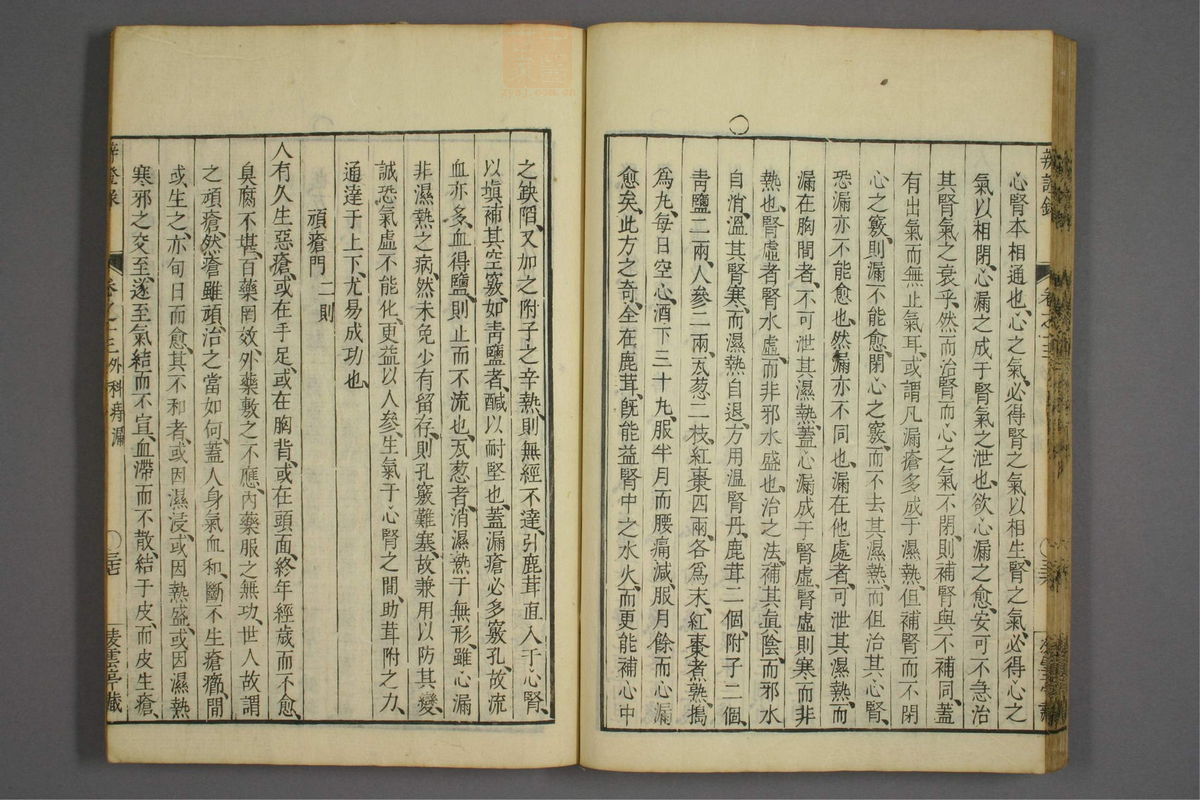 心腎本相通也、心之氣必得腎之氣以相生、腎之氣必得心之
氣以相閉、心漏之成于腎氣之泄也、欲心漏之愈、安可不急治
其腎氣之衰乎、然而治腎而心之氣不閉、則補腎與不補同、蓋
有出氣而無止氣耳、或謂凡漏瘡多成于濕熱、但補腎而不閉
心之竅、則漏不能愈、閉心之竅、而不去其濕熱、而但治其心腎、
恐漏亦不能愈也、然漏亦不同也、漏在他處者、可泄其濕熱、而
漏在胸間者、不可泄其濕熱、蓋心漏成于腎虛、腎虛則寒而非
熱也、腎虛者腎水虛、而非邪水盛也、治之法、補其眞陰、而邪水
自消、溫其腎寒、而濕熱自退、方用溫腎丹、鹿茸二個、附子二個、
靑鹽二兩、人參二兩、瓦葱二枝、紅棗四兩、各爲末、紅棗煮熟、搗
爲丸、每日空心酒下三十丸、服半月而腰痛減、服月餘而心漏
愈矣、此方之奇、全在鹿茸、旣能益腎中之水火、而更能補心中
之缺陷、又加之附子之辛熱、則無經不達、引鹿茸直入于心腎、
以塡補其空竅、如靑鹽者、鹹以耐堅也、蓋漏瘡必多竅孔、故流
血亦多、血得鹽、則止而不流也、瓦葱者、消濕熱于無形、雖心漏
非濕熱之病、然未免少有留存、則孔竅難塞、故兼用以防其變、
誠恐氣虛不能化、更益以人參、生氣于心腎之間、助茸附之力、
通達于上下、尤易成功也、
頑瘡門 二則
人有久生惡瘡、或在手足、或在胸背、或在頭面、終年經歲而不愈、
臭腐不堪、百藥罔效、外藥敷之不應、內藥服之無功、世人故謂
之頑瘡、然瘡雖頑、治之當如何、蓋人身氣血和、斷不生瘡癤、間
或生之、亦旬日而愈、其不和者、或因濕浸、或因熱盛、或因濕熱
寒邪之交至、遂至氣結而不宣、血滯而不散、結于皮、而皮生瘡、
卷之十三 外科痔漏
三七